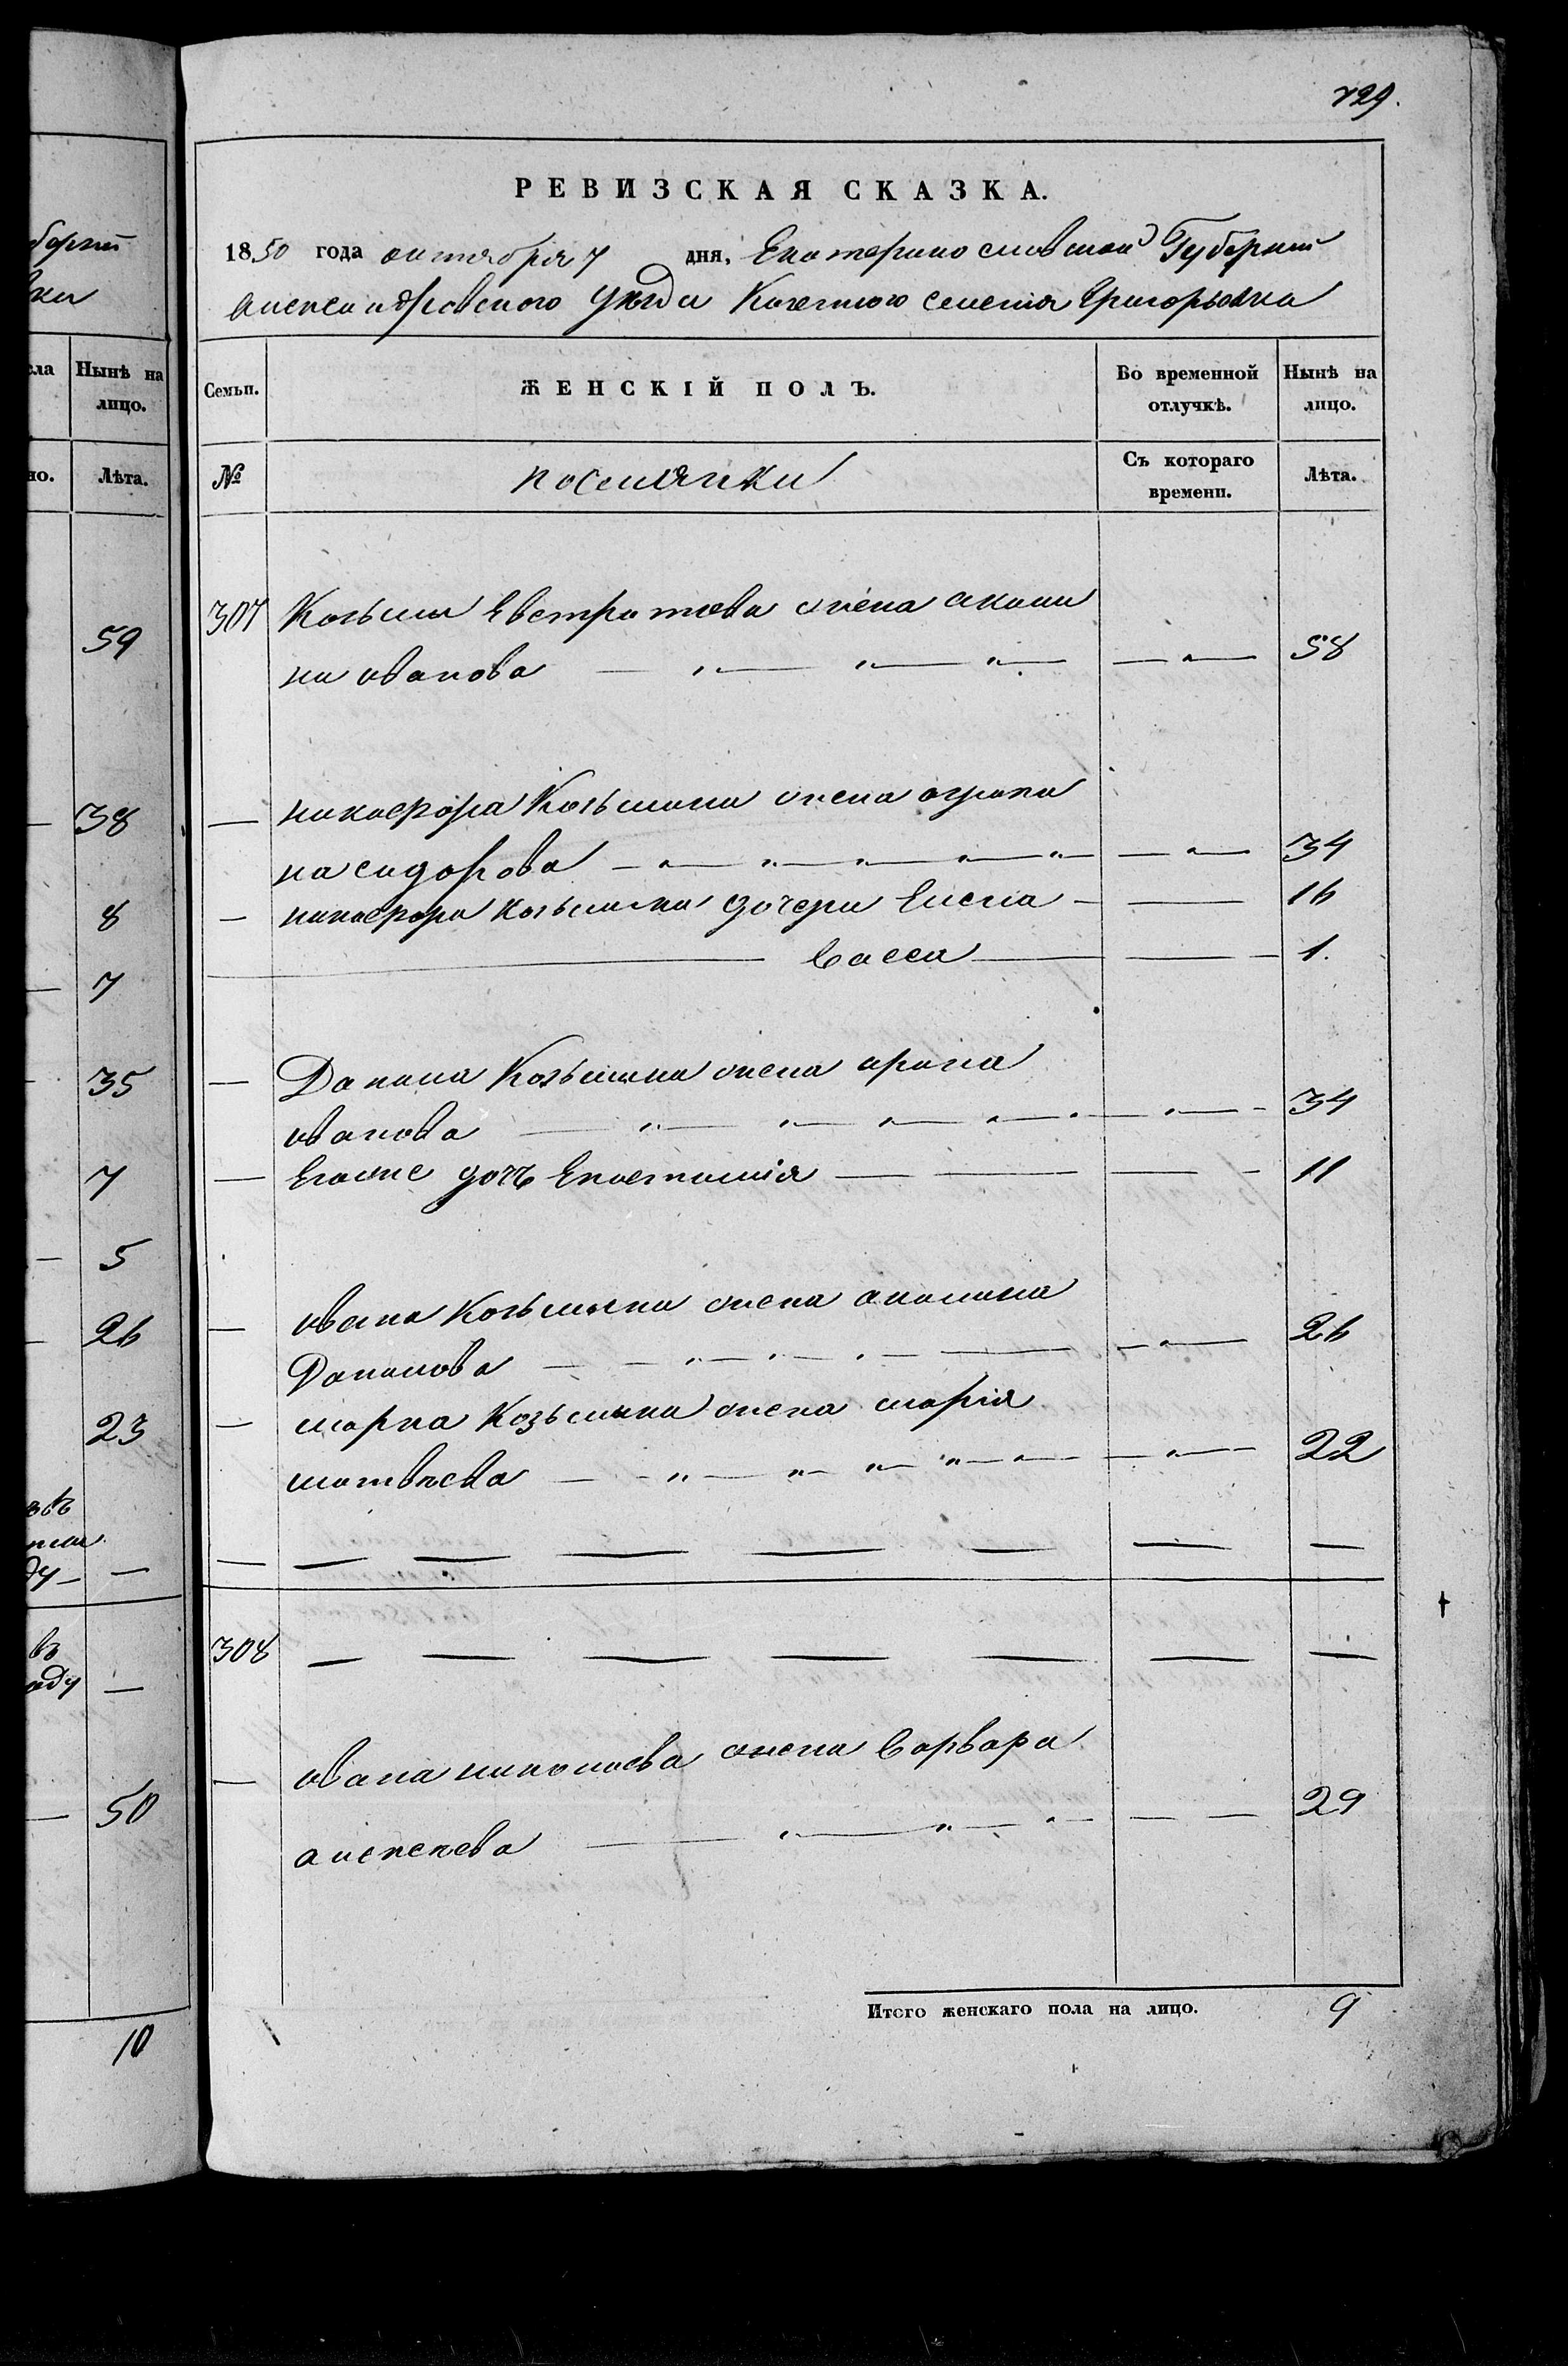 729.
берніи
РЕВИЗСКАЯ СКАЗКА.
1850 года октября 7 дня, Екатеринославской Губерніи
Александровскаго уѣзда Казеннаго селенія Григорьевка
Нынѣ на лицо.
Лѣта.
59
38
8
7
35
7
5
26
23
50
10
Семьи. ЖЕНСКІЙ ПОЛЪ. Во временной отлучкѣ. Нынѣ на лицо.
№ поселянки Съ котораго времени. Лѣта.
307 Козьмы Евстратова жена акили
на иванова — „ — „ — „ — — „ — 58
— никифора Козьмина жена агрипи
на сидорова — „ — „ — „ — „ — „ — — „ — 34
— никифора козьмина дочери Елена — — 16
— Васса — — 1.
— Данила Козьмина жена арина
иванова — „ — „ — „ — „ — „ — „ — 34
— Егоже дочь Анастасия — — — 11
— ивана Козьмина жена акилина
Данилова — — „ — „ — „ — — — „ — 26
— марка Козьмина жена марія
матвѣева — „ — „ — „ — „ — „ — — „ — 22
— — — — — — — —
308 — — — — — — —
— ивана николаева жена варвара
алексѣева — „ — „ — „ — — — 29
Итого женскаго пола на лицо. 9